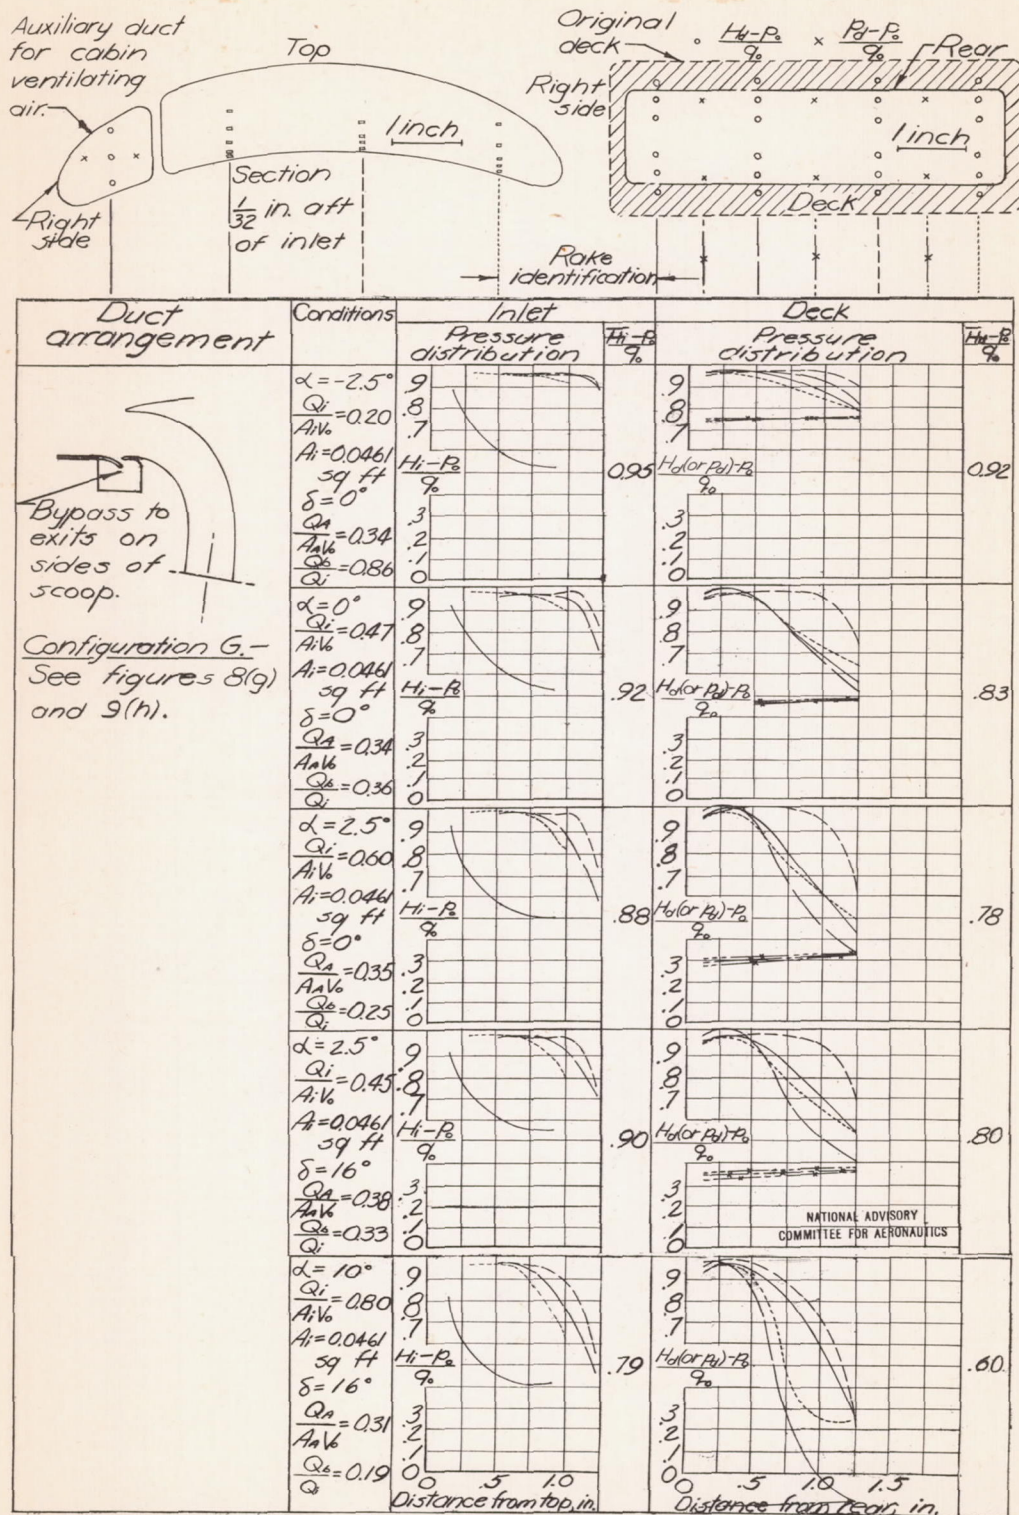 Auxiliary duct
for cabin
ventilating
air.
Top
1 inch
Section
1/32 in. aft
of inlet
Right
side
Original
deck
∘ Hd-Po/qo × Pd-Po/qo
Rear
Right
side
1 inch
Deck
Rake
identification
Duct
arrangement
Conditions
Inlet
Deck
Pressure
distribution
H̅i-Po/qo
Pressure
distribution
H̅d-Po/qo
Bypass to
exits on
sides of
scoop.
Configuration G.-
See figures 8(g)
and 9(h).
α=-2.5°
Qi/AiVo=0.20
Ai=0.0461
sq ft
δ=0°
QA/AAVo=0.34
Qb/Qi=0.86
.9
.8
.7
Hi-Po/qo
.3
.2
.1
0
0.95
.9
.8
.7
Hd(or Pd)-Po/qo
.3
.2
.1
0
0.92
α=0°
Qi/AiVo=0.47
Ai=0.0461
sq ft
δ=0°
QA/AAVo=0.34
Qb/Qi=0.36
.9
.8
.7
Hi-Po/qo
.3
.2
.1
0
.92
.9
.8
.7
Hd(or Pd)-Po/qo
.3
.2
.1
0
.83
α=2.5°
Qi/AiVo=0.60
Ai=0.0461
sq ft
δ=0°
QA/AAVo=0.35
Qb/Qi=0.25
.9
.8
.7
Hi-Po/qo
.3
.2
.1
0
.88
.9
.8
.7
Hd(or Pd)-Po/qo
.3
.2
.1
0
.78
α=2.5°
Qi/AiVo=0.45
Ai=0.0461
sq ft
δ=16°
QA/AAVo=0.38
Qb/Qi=0.33
.9
.8
.7
Hi-Po/qo
.3
.2
.1
0
.90
.9
.8
.7
Hd(or Pd)-Po/qo
.3
.2
.1
0
.80
NATIONAL ADVISORY
COMMITTEE FOR AERONAUTICS
α=10°
Qi/AiVo=0.80
Ai=0.0461
sq ft
δ=16°
QA/AAVo=0.31
Qb/Qi=0.19
.9
.8
.7
Hi-Po/qo
.3
.2
.1
0
.79
.9
.8
.7
Hd(or Pd)-Po/qo
.3
.2
.1
0
.60
0 .5 1.0
Distance from top, in.
0 .5 1.0 1.5
Distance from rear, in.